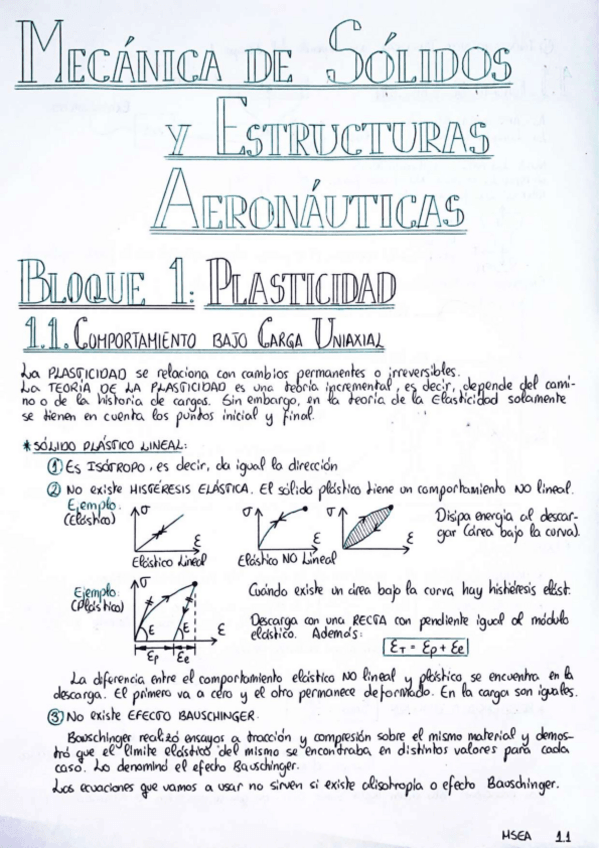 MECÁNICA DE SÓLIDOS
Y ESTRUCTURAS
AERONÁUTICAS
BLOQUE 1: PLASTICIDAD
1.1. COMPORTAMIENTO BAJO CARGA UNIAXIAL
La PLASTICIDAD se relaciona con cambios permanentes o irreversibles.
La TEORÍA DE LA PLASTICIDAD es una teoría incremental, es decir, depende del cami-
no o de la historia de cargas. Sin embargo, en la teoría de la Elasticidad solamente
se tienen en cuenta los puntos inicial y final.
* SÓLIDO PLÁSTICO LINEAL:
① ES ISÓTROPO, es decir, da igual la dirección
② No existe HISTÉRESIS ELÁSTICA. El sólido plástico tiene un comportamiento NO lineal.
Ejemplo: (Elástico)
σ ε
Elástico Lineal
σ ε
Elástico NO Lineal
σ ε
Disipa energía al descar-
gar (área bajo la curva).
Ejemplo: (Plástico)
σ E E ε
εp εe
Cuándo existe un área bajo la curva hay histiéresis elást.
Descarga con una RECTA con pendiente igual al módulo
elástico. Además:
εT = εp + εe
La diferencia entre el comportamiento elástico NO lineal y plástico se encuentra en la
descarga. El primero va a cero y el otro permanece deformado. En la carga son iguales.
③ No existe EFECTO BAUSCHINGER.
Bauschinger realizó ensayos a tracción y compresión sobre el mismo material y demos-
tró que el límite elástico del mismo se encontraba en distintos valores para cada
caso. Lo denominó el efecto Bauschinger.
Las ecuaciones que vamos a usar no sirven si existe alisotropía o efecto Bauschinger.
MSEA 1.1